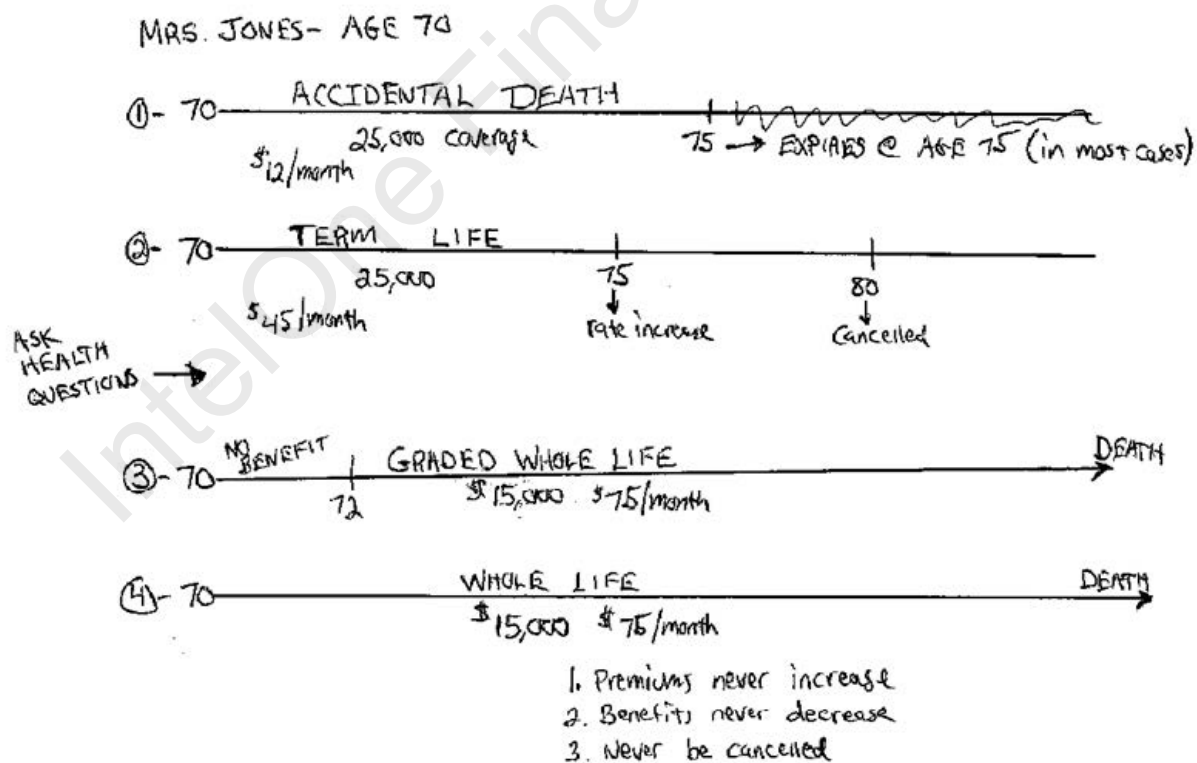 MRS. JONES- AGE 70
①- 70 ACCIDENTAL DEATH
25,000 coverage
$12/month
75 → EXPIRES @ AGE 75 (in most cases)
②- 70 TERM LIFE
25,000
$45/month
75
rate increase
80
Cancelled
ASK
HEALTH
QUESTIONS →
③- 70 NO BENEFIT
72
GRADED WHOLE LIFE
$15,000 $75/month
DEATH
④- 70 WHOLE LIFE
$15,000 $75/month
DEATH
1. Premiums never increase
2. Benefits never decrease
3. Never be cancelled
IntelOne Fina